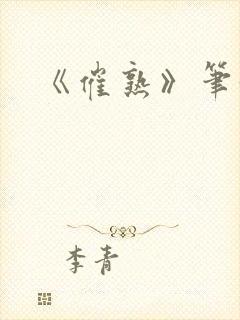 《催熟》筆
李青